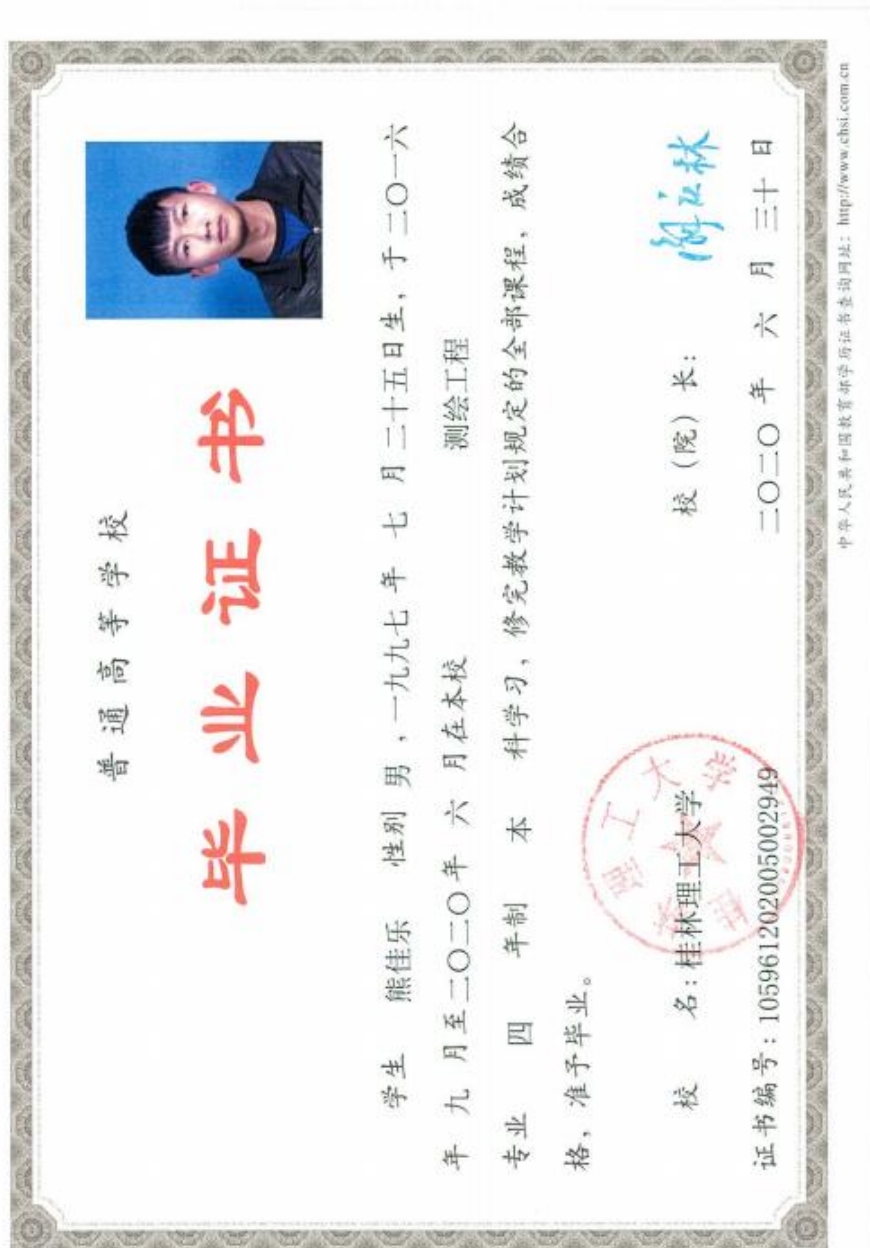 普通高等学校
毕业证书
学生 熊佳乐 性别 男，一九九七年 七 月二十五日生，于二〇一六
年 九 月至二〇二〇年 六 月在本校 测绘工程
专业 四 年制 本 科学习，修完教学计划规定的全部课程，成绩合
格，准予毕业。
校 名：桂林理工大学
桂林理工大学
校（院）长：
证书编号：105961202005002949
二〇二〇年 六 月 三十 日
中华人民共和国教育部学历证书查询网址：http://www.chsi.com.cn